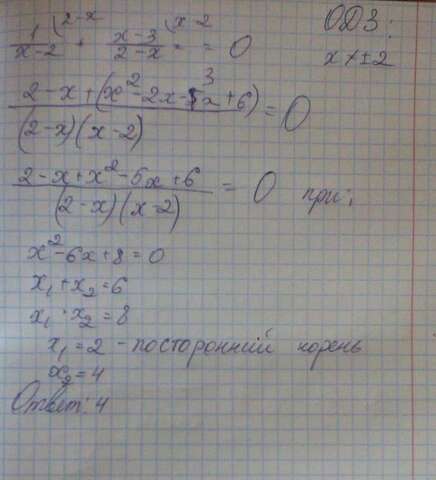 1/(x-2) (2-x + (x-3)/(2-x) (x-2 = 0
ОДЗ:
x ≠ ±2
(2-x+(x²-2x-3x+6))/((2-x)(x-2)) = 0
(2-x+x²-5x+6)/((2-x)(x-2)) = 0 при:
x²-6x+8=0
x₁+x₂=6
x₁·x₂=8
x₁=2 - посторонний корень
x₂=4
Ответ: 4